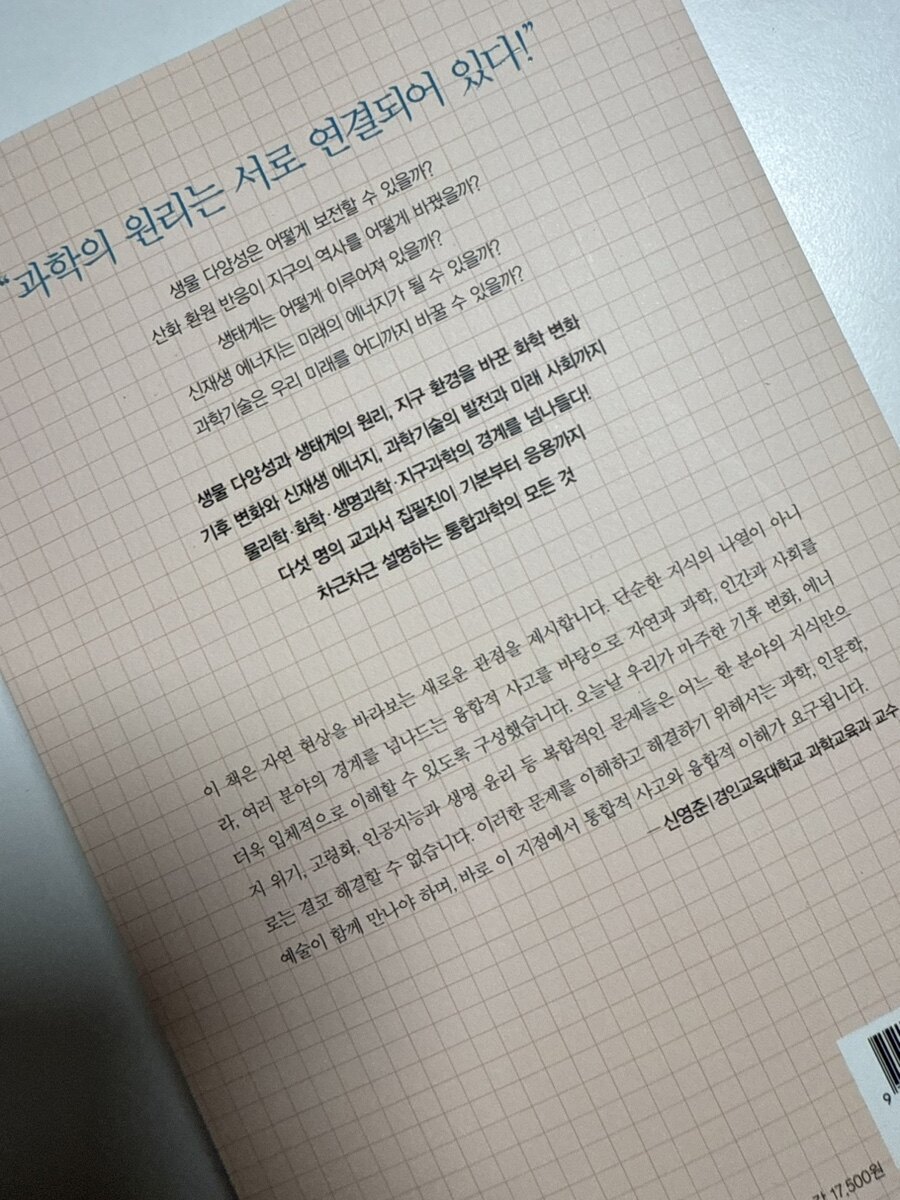 “과학의 원리는 서로 연결되어 있다!”
생물 다양성은 어떻게 보전할 수 있을까?
산화 환원 반응이 지구의 역사를 어떻게 바꿨을까?
생태계는 어떻게 이루어져 있을까?
신재생 에너지는 미래의 에너지가 될 수 있을까?
과학기술은 우리 미래를 어디까지 바꿀 수 있을까?
생물 다양성과 생태계의 원리, 지구 환경을 바꾼 화학 변화
기후 변화와 신재생 에너지, 과학기술의 발전과 미래 사회까지
물리학·화학·생명과학·지구과학의 경계를 넘나들다!
다섯 명의 교과서 집필진이 기본부터 응용까지
차근차근 설명하는 통합과학의 모든 것
이 책은 자연 현상을 바라보는 새로운 관점을 제시합니다. 단순한 지식의 나열이 아니
라, 여러 분야의 경계를 넘나드는 융합적 사고를 바탕으로 자연과 과학, 인간과 사회를
더욱 입체적으로 이해할 수 있도록 구성했습니다. 오늘날 우리가 마주한 기후 변화, 에너
지 위기, 고령화, 인공지능과 생명 윤리 등 복합적인 문제들은 어느 한 분야의 지식만으
로는 결코 해결할 수 없습니다. 이러한 문제를 이해하고 해결하기 위해서는 과학, 인문학,
예술이 함께 만나야 하며, 바로 이 지점에서 통합적 사고와 융합적 이해가 요구됩니다.
—신영준 | 경인교육대학교 과학교육과 교수
9
값 17,500원